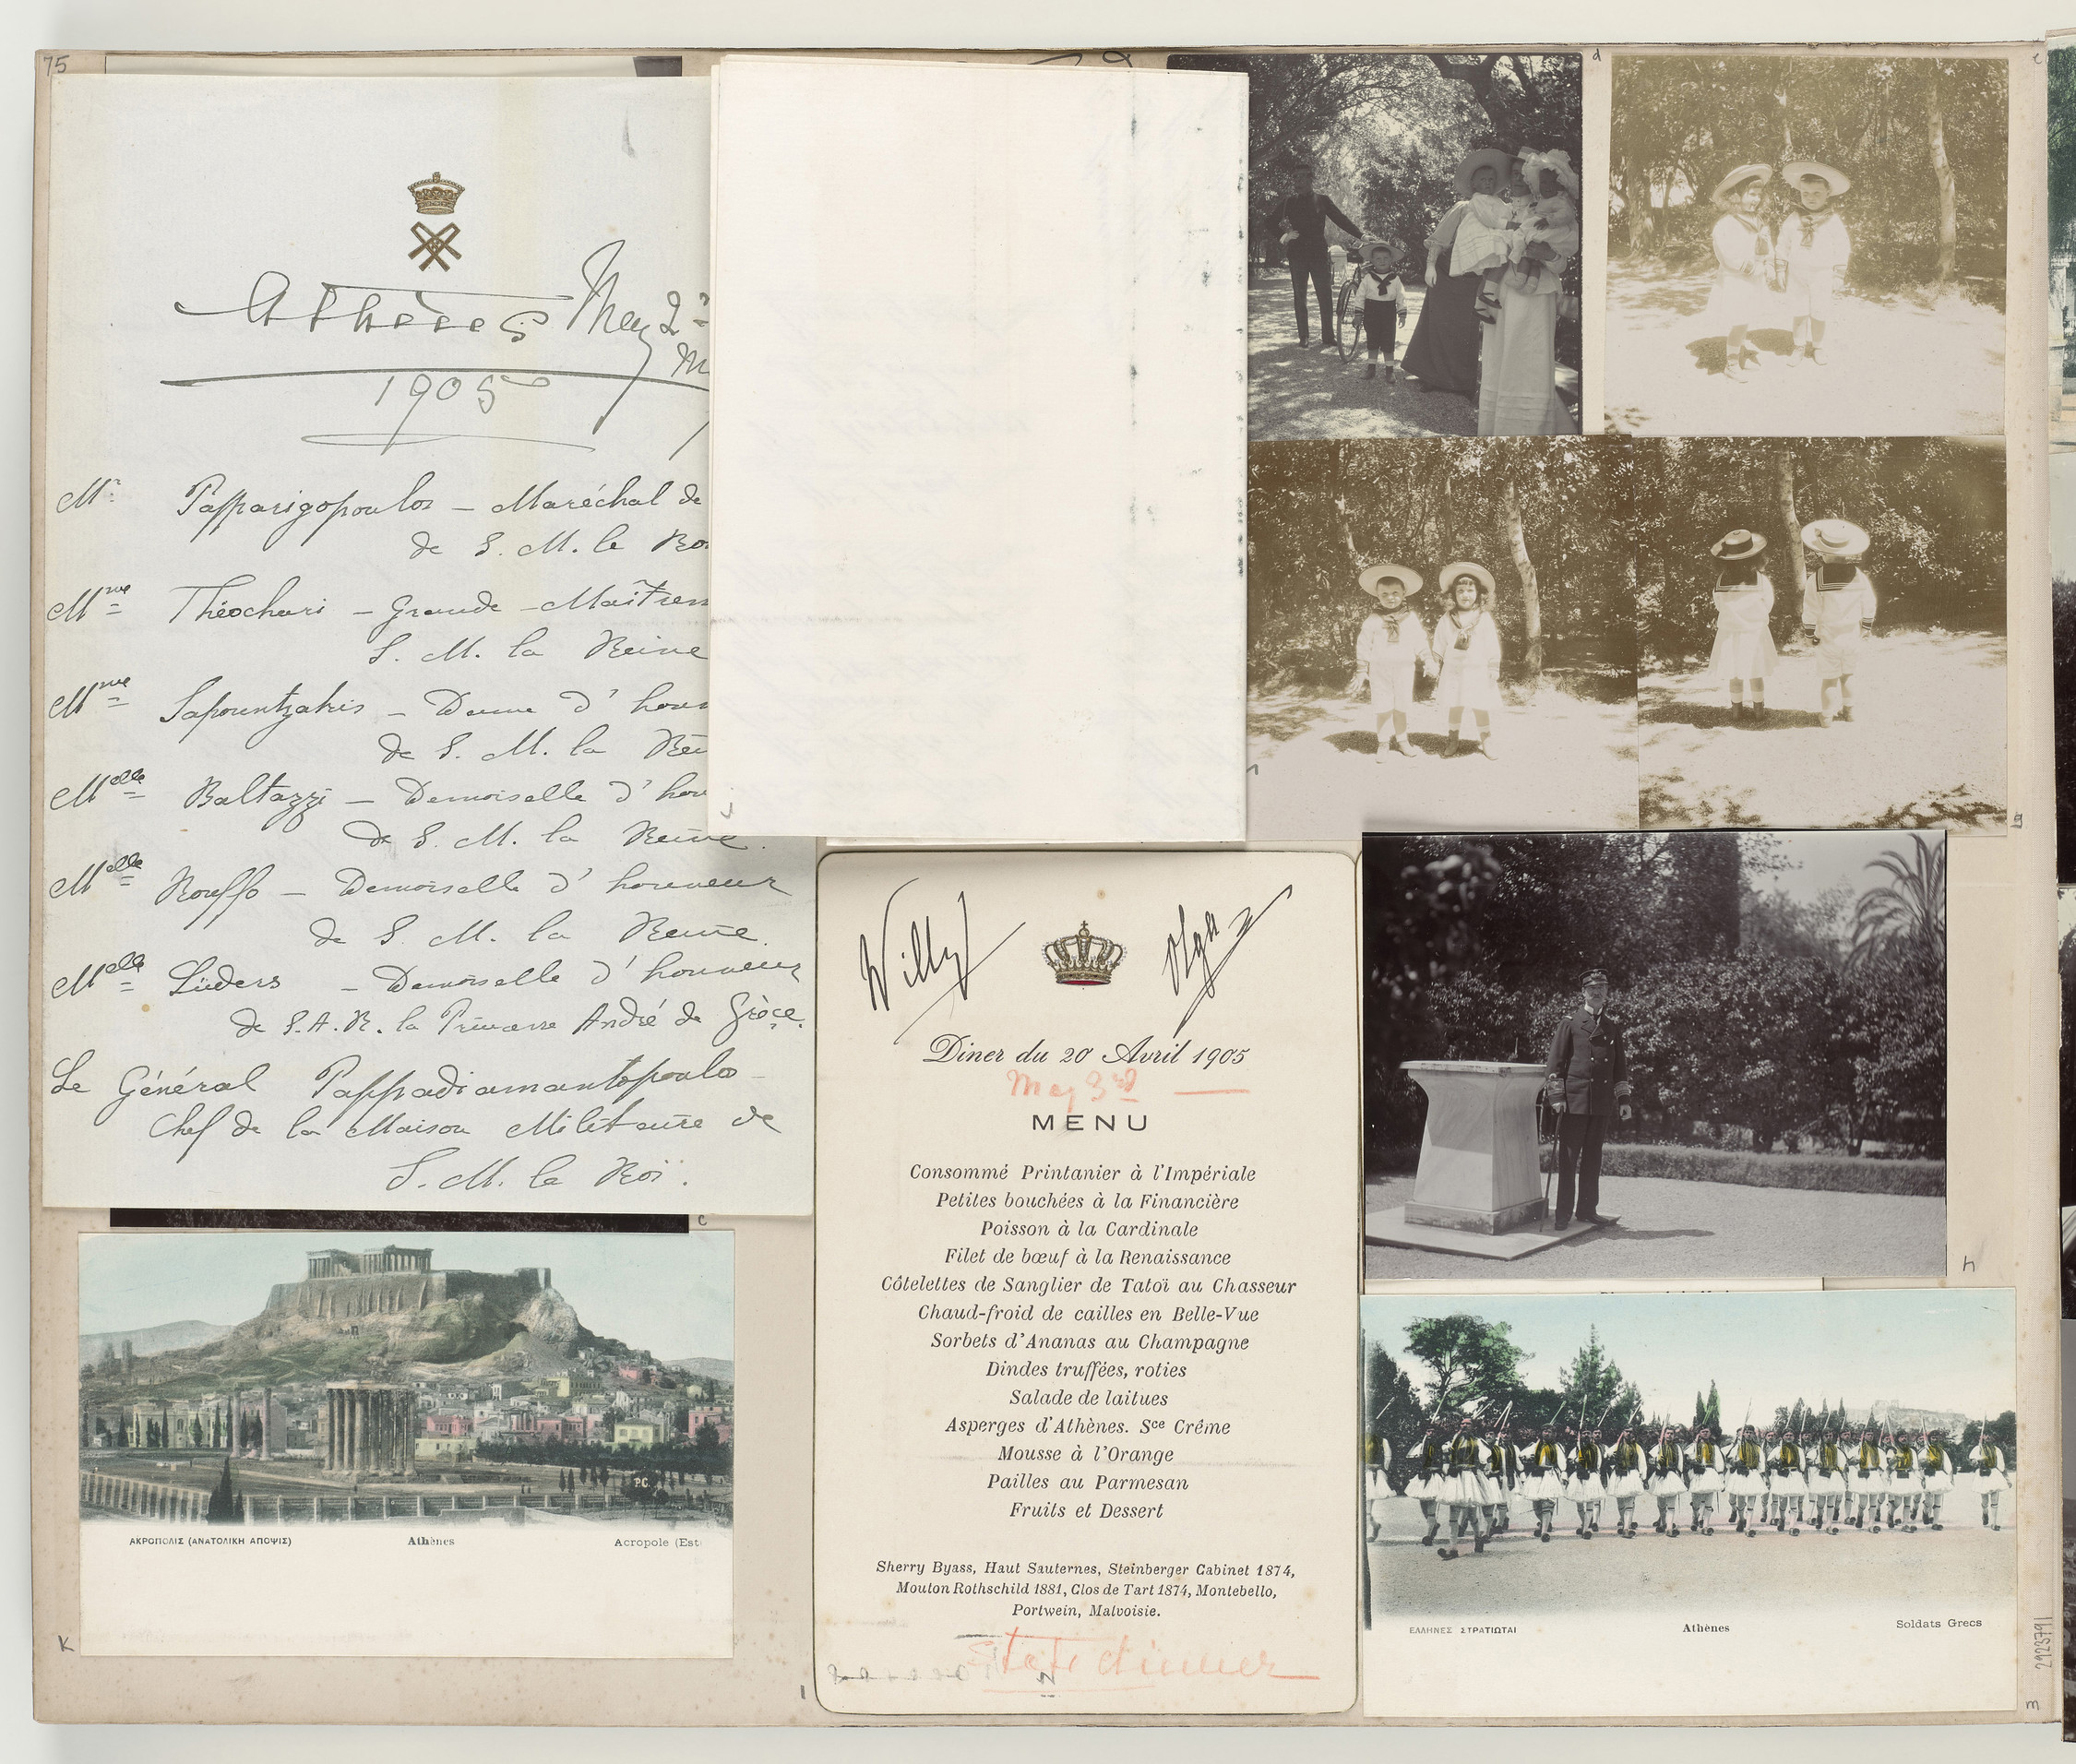 75
Athènes May 2
1905
Mr Papparigopoulos — Maréchal de
de S. M. le Ro
Mme Théochari — Grande-Maîtress
S. M. la Reine
Mme Sapountzakis — Dame d'honn
de S. M. la Rei
Melle Baltazzi — Demoiselle d'hon
de S. M. la Reine.
Melle Rouffo — Demoiselle d'honneur
de S. M. la Reine.
Melle Lüders — Demoiselle d'honneur
de S. A. R. la Princesse André de Grèce.
Le Général Pappadiamantopoulos
Chef de la Maison Militaire de
S. M. le Roi.
c
d
e
g
h
Willy
Olga
Diner du 20 Avril 1905
May 3rd
MENU
Consommé Printanier à l'Impériale
Petites bouchées à la Financière
Poisson à la Cardinale
Filet de bœuf à la Renaissance
Côtelettes de Sanglier de Tatoï au Chasseur
Chaud-froid de cailles en Belle-Vue
Sorbets d'Ananas au Champagne
Dindes truffées, roties
Salade de laitues
Asperges d'Athènes. Sce Crême
Mousse à l'Orange
Pailles au Parmesan
Fruits et Dessert
Sherry Byass, Haut Sauternes, Steinberger Cabinet 1874,
Mouton Rothschild 1881, Clos de Tart 1874, Montebello,
Portwein, Malvoisie.
State dinner
P.C.
ΑΚΡΟΠΟΛΙΣ (ΑΝΑΤΟΛΙΚΗ ΑΠΟΨΙΣ) Athènes Acropole (Est)
K
l
ΕΛΛΗΝΕΣ ΣΤΡΑΤΙΩΤΑΙ Athènes Soldats Grecs
m